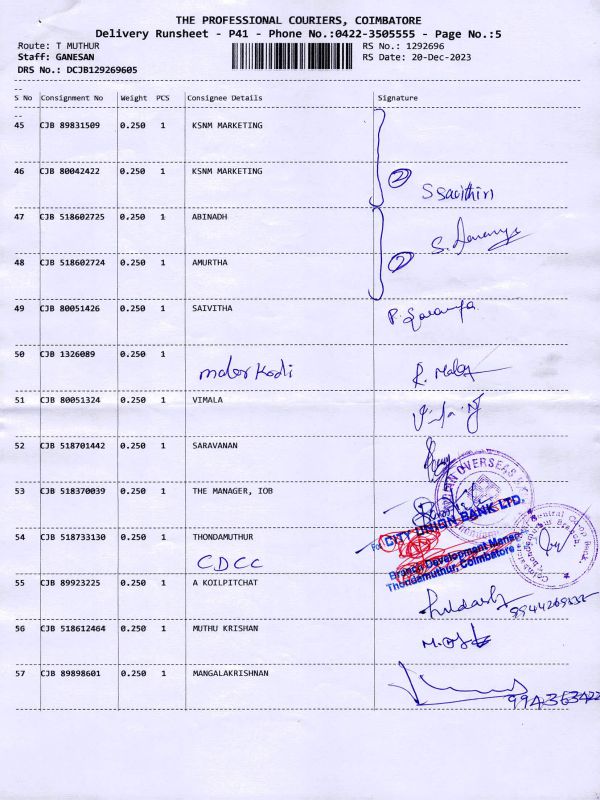 THE PROFESSIONAL COURIERS, COIMBATORE
Delivery Runsheet - P41 - Phone No.:0422-3505555 - Page No.:5
Route: T MUTHUR RS No.: 1292696
Staff: GANESAN RS Date: 20-Dec-2023
DRS No.: DCJB129269605
--
S No Consignment No Weight PCS Consignee Details Signature
--
45 CJB 89831509 0.250 1 KSNM MARKETING
46 CJB 80042422 0.250 1 KSNM MARKETING 2
S Savithiri
47 CJB 518602725 0.250 1 ABINADH
48 CJB 518602724 0.250 1 AMURTHA 2
49 CJB 80051426 0.250 1 SAIVITHA
50 CJB 1326089 0.250 1
malar kodi
51 CJB 80051324 0.250 1 VIMALA
52 CJB 518701442 0.250 1 SARAVANAN
53 CJB 518370039 0.250 1 THE MANAGER, IOB
54 CJB 518733130 0.250 1 THONDAMUTHUR
For CITY UNION BANK LTD.
CDCC
Branch Development Manager
Thondamuthur, Coimbatore
55 CJB 89923225 0.250 1 A KOILPITCHAT
56 CJB 518612464 0.250 1 MUTHU KRISHAN
57 CJB 89898601 0.250 1 MANGALAKRISHNAN